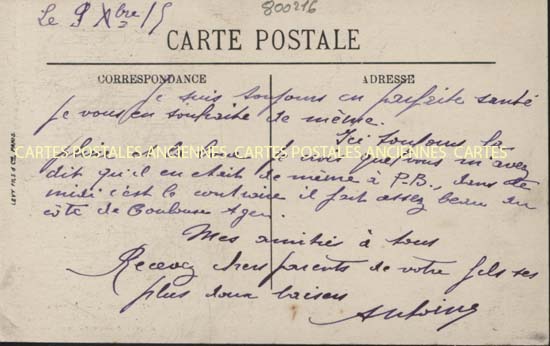 Le 9 Xbre 15
800216
CARTE POSTALE
CORRESPONDANCE
ADRESSE
Je suis toujours en parfaite santé
je vous en souhaite de même.
Ici toujours la
CARTES POSTALES ANCIENNES CARTES POSTALES ANCIENNES CARTES
pluie et la boue vous m'avez
dit qu'il en était de même à P.B., dans le
midi c'est le contraire il fait assez beau du
côté de Toulouse Agen.
Mes amitiés à tous
Recevez chers parents de votre fils ses
plus doux baisers
Antoine
LEVY FILS & Cie, PARIS.